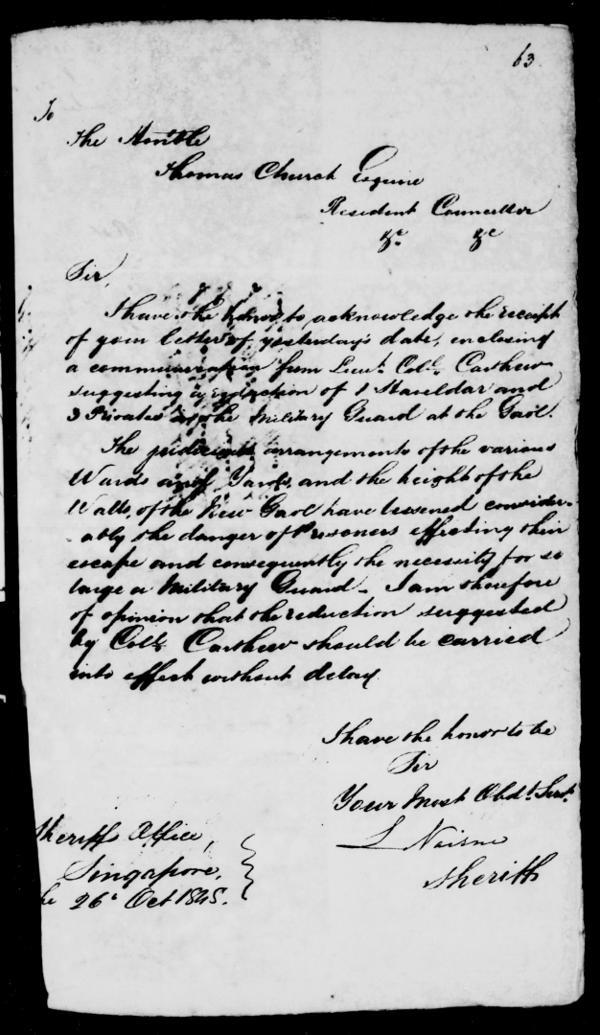 63
To
The Honble
Thomas Church Esquire
Resident Councillor
&c &c
Sir,
I have the honor to acknowledge the receipt
of your letter of yesterday's date, enclosing
a communication from Lieut. Coll. Carthew
suggesting a reduction of 1 Hauldar and
3 Privates in the Military Guard at the Gaol.
The judicious arrangements of the various
Wards and Yards, and the height of the
Walls, of the New Gaol have lessened consider-
ably the danger of Prisoners effecting their
escape and consequently the necessity for so
large a Military Guard - I am therefore
of opinion that the reduction suggested
by Coll. Carthew should be carried
into effect without delay.
I have the honor to be
Sir
Your Most Obdt. Servt.
Sheriff
Sheriffs Office,
Singapore,
he 26th Oct 1845.